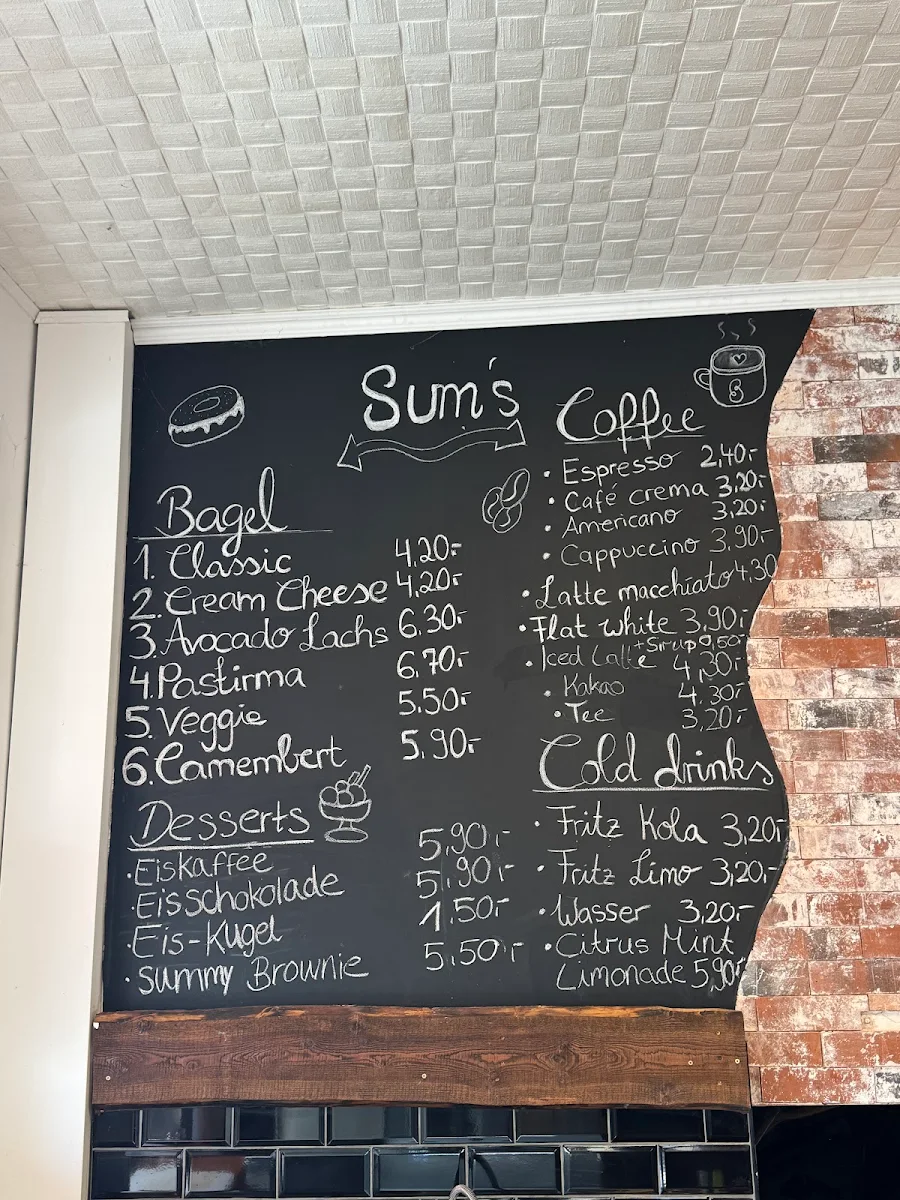 Sum's
Bagel
1. Classic 4,20,-
2. Cream Cheese 4,20,-
3. Avocado Lachs 6,30,-
4. Pastirma 6,70,-
5. Veggie 5,50,-
6. Camembert 5,90,-
Desserts
· Eiskaffee 5,90,-
· Eisschokolade 5,90,-
· Eis-Kugel 1,50,-
· Summy Brownie 5,50,-
Coffee
· Espresso 2,40,-
· Café crema 3,20,-
· Americano 3,20,-
· Cappuccino 3,90,-
· Latte macchiato 4,30
· Flat white 3,90,-
+Sirup 0,50,-
· Iced Latte 4,30,-
· Kakao 4,30,-
· Tee 3,20,-
Cold drinks
· Fritz Kola 3,20,-
· Fritz Limo 3,20,-
· Wasser 3,20,-
· Citrus Mint
Limonade 5,90,-